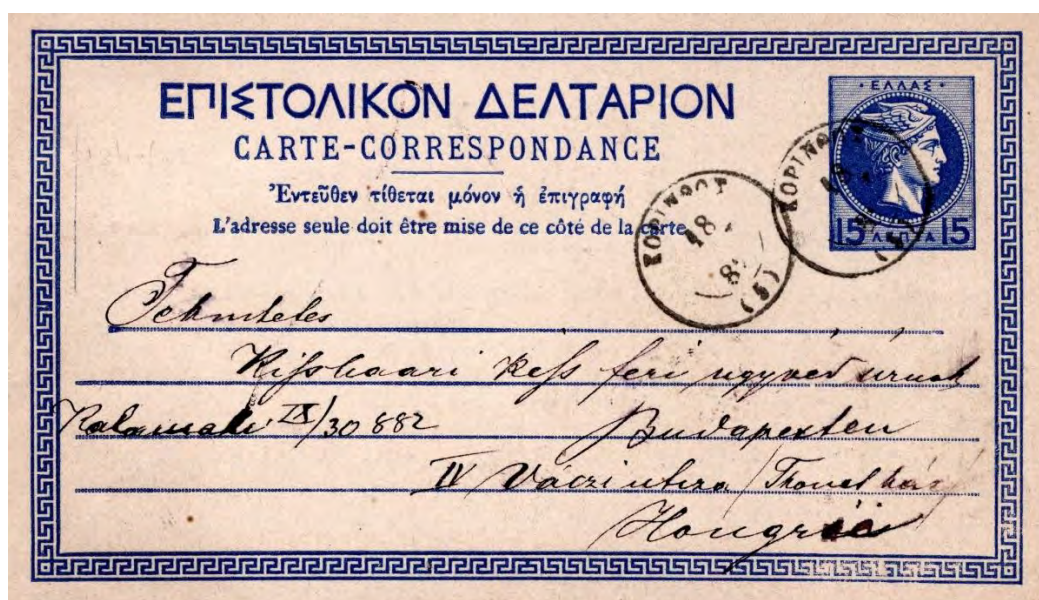 ΕΠΙΣΤΟΛΙΚΟΝ ΔΕΛΤΑΡΙΟΝ
CARTE-CORRESPONDANCE
Ἐντεῦθεν τίθεται μόνον ἡ ἐπιγραφή
L'adresse seule doit être mise de ce côté de la carte
ΕΛΛΑΣ
15 ΛΕΠΤΑ 15
ΚΟΡΙΝΘΟΣ
18
(5)
ΚΟΡΙΝΘΟΣ
18
8
(5)
feri ügyved urnak
IX/30 882
Budapesten
IV Váczi utcza Thonet
Hongrie